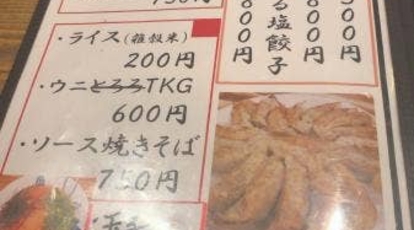 750円
・ライス(雑穀米)
200円
・ウニとろろTKG
600円
・ソース焼きそば
750円
る塩餃子
800円
800円
500円